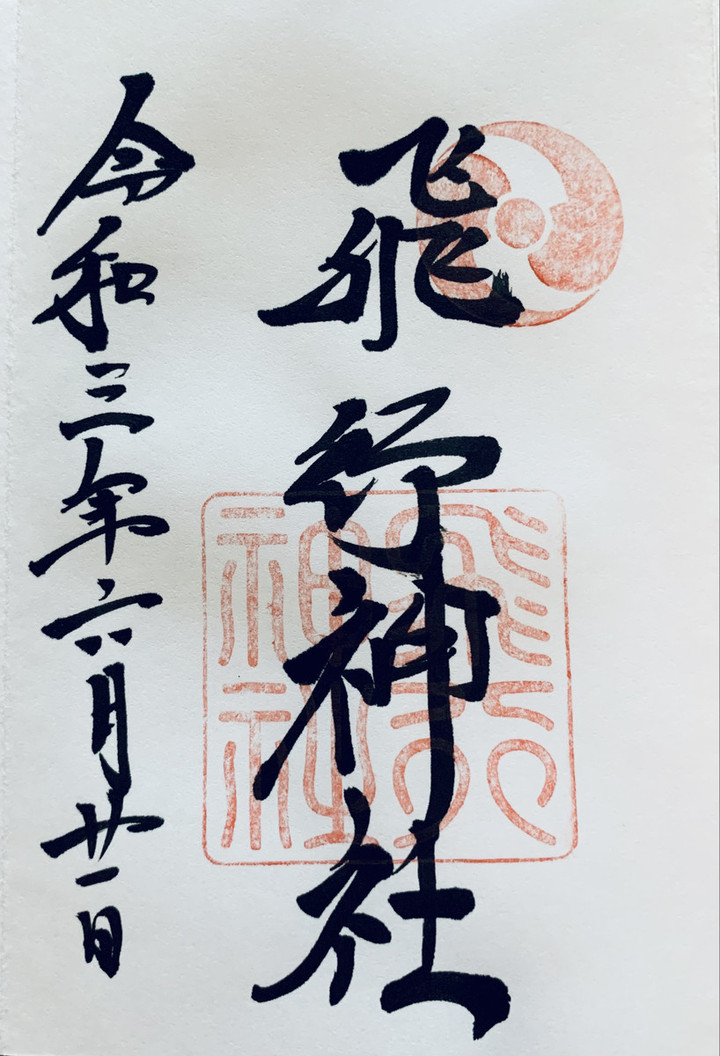 飛行神社
令和三年六月廿一日
飛行
神社